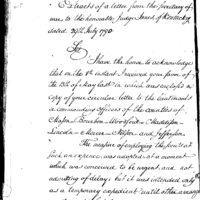 Extracts of a letter from the Secretary of
war to the honorable Judge Innes of Kentucky
dated 29th July 1790
Sir
I have the honor to acknowledge
that on the 8th instant I received your favor of
the 13th of May last in which was enclosed a
copy of your circular letter to the Lieutenants
commanding officers of the counties of
Bourbon Woodford
Lincoln Mercer and Jefferson
The measure of employing the scouts at
such an expence was adopted at a moment
which was conceived to be urgent and not
admitting of delay; but it was intended only
as a temporary expedient until other arrange